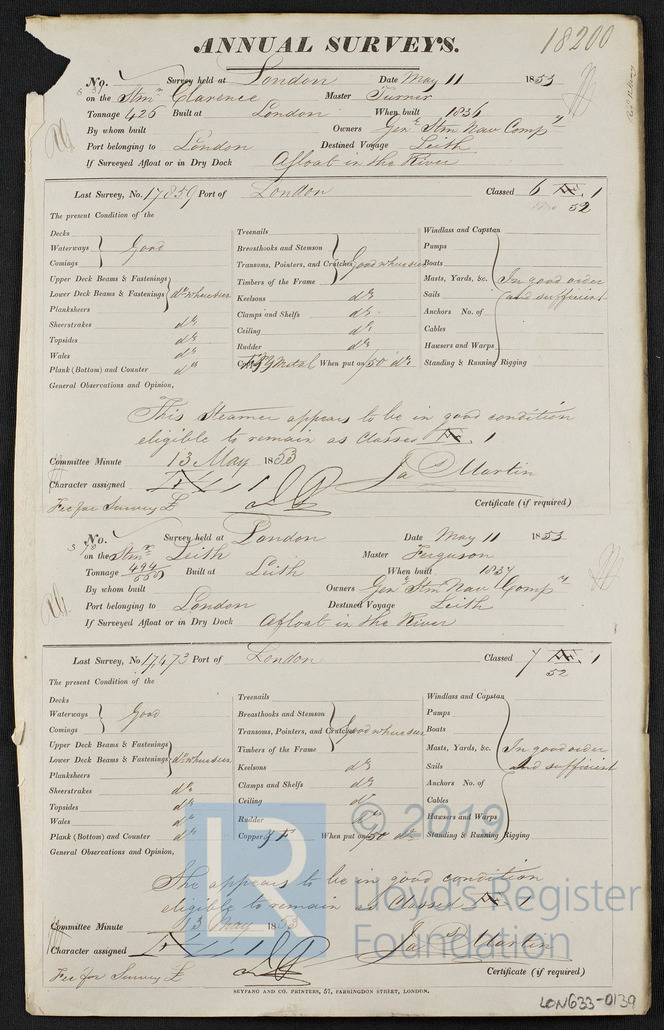 ANNUAL SURVEYS.
18200
No. Survey held at London Date May 11 1853
on the Stmr Clarence Master Turner
Tonnage 426 Built at London When built 1836
By whom built Owners Genl Stm Nav Compy
Port belonging to London Destined Voyage Leith
If Surveyed Afloat or in Dry Dock Afloat in the River
Last Survey, No. 17859 Port of London Classed 6 1
52
The present Condition of the
Decks
Waterways Good
Comings
Upper Deck Beams & Fastenings
Lower Deck Beams & Fastenings do where seen
Planksheers
Sheerstrakes do
Topsides do
Wales do
Plank (Bottom) and Counter do
Treenails
Breasthooks and Stemson
Transoms, Pointers, and Crutches Good where seen
Timbers of the Frame
Keelsons do
Clamps and Shelfs do
Ceiling do
Rudder do
Metal When put on 50 do
Windlass and Capstan
Pumps
Boats
Masts, Yards, &c. In good order
Sails and sufficient
Anchors No. of
Cables
Hawsers and Warps
Standing & Running Rigging
General Observations and Opinion,
This Steamer appears to be in good condition
eligible to remain as Classed 1
Committee Minute 13 May 1853
Character assigned 1
Jas Martin
Fee for Survey £ Certificate (if required)
No. Survey held at London Date May 11 1853
on the Stmr Leith Master Ferguson
Tonnage 494 Built at Leith When built 1837
By whom built Owners Genl Stm Nav Compy
Port belonging to London Destined Voyage Leith
If Surveyed Afloat or in Dry Dock Afloat in the River
Last Survey, No. 17473 Port of London Classed 7 1
52
The present Condition of the
Decks
Waterways Good
Comings
Upper Deck Beams & Fastenings
Lower Deck Beams & Fastenings do where seen
Planksheers
Sheerstrakes do
Topsides do
Wales do
Plank (Bottom) and Counter do
Treenails
Breasthooks and Stemson
Transoms, Pointers, and Crutches Good where seen
Timbers of the Frame
Keelsons do
Clamps and Shelfs do
Ceiling do
Rudder do
Copper When put on 50 do
Windlass and Capstan
Pumps
Boats
Masts, Yards, &c. In good order
Sails and sufficient
Anchors No. of
Cables
Hawsers and Warps
Standing & Running Rigging
General Observations and Opinion,
She appears to be in good condition
eligible to remain as Classed 1
Committee Minute 13 May 1853
Character assigned 1
Jas Martin
Fee for Survey £ Certificate (if required)
SEYFANG AND CO. PRINTERS, 57, FARRINGDON STREET, LONDON.
LON633-0139
LR
© 2019
Lloyd's Register
Foundation